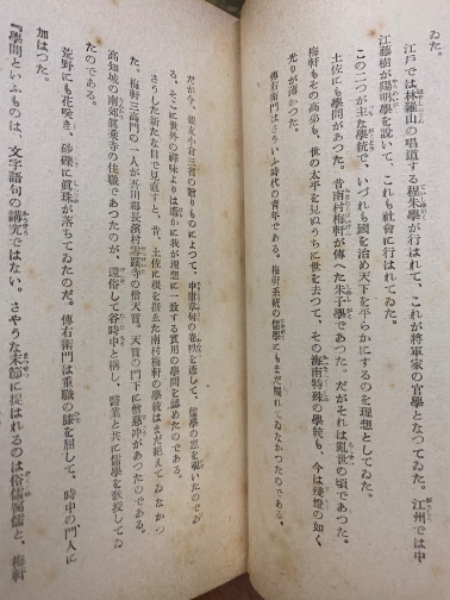 ゐた。
江戸では林羅山の唱道する程朱學が行はれて、これが將軍家の官學となつてゐた。江州では中
江藤樹が陽明學を說いて、これも社會に行はれてゐた。
この二つが主な學統で、いづれも國を治め天下を平らかにするのを理想としてゐた。
土佐にも學問があつた。昔南村梅軒が傳へた朱子學であつた。だがそれは亂世の頃であつた。
梅軒もその高弟も、世の太平を見ぬうちに世を去つて、その海南特殊の學統も、今は殘燈の如く
光りが薄かつた。
傳右衛門はさういふ時代の靑年である。梅軒系統の儒學にもまだ觸れてゐなかつたのである。
だが今、親友小倉三省の贈りものによつて、中庸章句の卷帙を透して、儒學の窓を覗いたのであ
る。そこに世外の禪味よりは遙かに我が理想に一致する實用の學問を認めたのである。
さうした新たな目で見直すと、昔、土佐に根を据ゑた南村梅軒の學統はまだ絕えてゐなかつ
た。梅軒三高門の一人が吾川郡長濱村雪蹊寺の僧天質。天質の門下に僧慈冲があつたのである。
高知城の南郊眞乘寺の住職であつたのが、還俗して谷時中と稱し、醫業と共に儒學を敎授してゐ
たのである。
荒野にも花咲き、砂礫に眞珠が落ちてゐたのだ。傳右衛門は重職の膝を屈して、時中の門人に
加はつた。
『學問といふものは、文字語句の講究ではない。さやうな末節に捉はれるのは俗儒腐儒と、梅軒